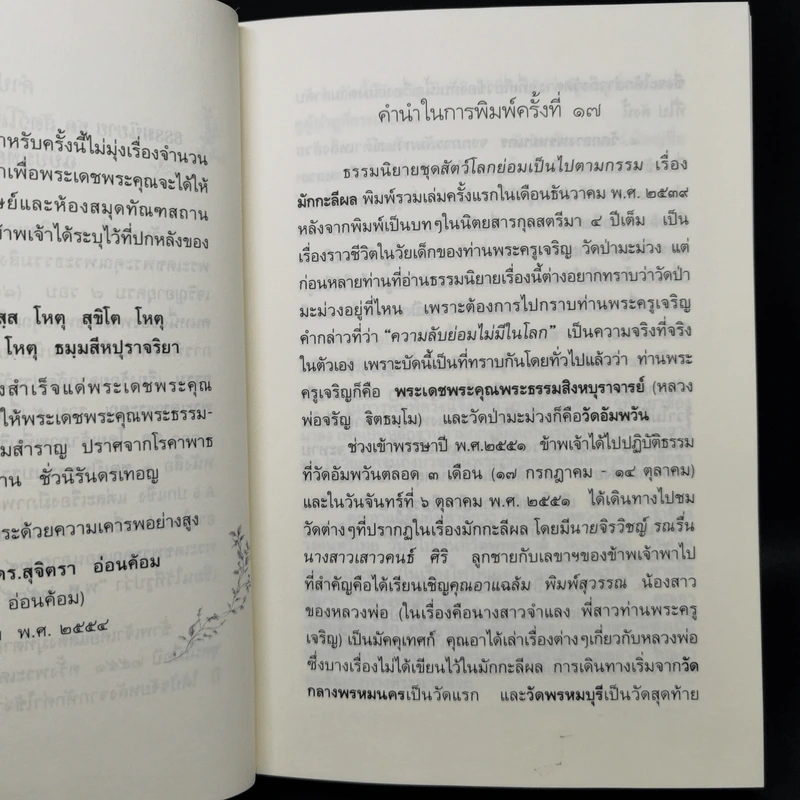 ำหรับครั้งนี้ไม่มุ่งเรื่องจำนวน
าเพื่อพระเดชพระคุณจะได้ให้
ษย์และห้องสมุดทัณฑสถาน
ข้าพเจ้าได้ระบุไว้ที่ปกหลังของ
สฺส โหตุ สุขิโต โหตุ
โหตุ ธมฺมสีหปุราจริยา
งสำเร็จแด่พระเดชพระคุณ
ให้พระเดชพระคุณพระธรรม-
มสำราญ ปราศจากโรคาพาธ
าน ชั่วนิรันดรเทอญ
ระด้วยความเคารพอย่างสูง
ดร.สุจิตรา อ่อนค้อม
อ่อนค้อม)
พ.ศ. ๒๕๕๔
คำนำในการพิมพ์ครั้งที่ ๑๗
ธรรมนิยายชุดสัตว์โลกย่อมเป็นไปตามกรรม เรื่อง
มักกะลีผล พิมพ์รวมเล่มครั้งแรกในเดือนธันวาคม พ.ศ. ๒๕๓๙
หลังจากพิมพ์เป็นบทๆในนิตยสารกุลสตรีมา ๔ ปีเต็ม เป็น
เรื่องราวชีวิตในวัยเด็กของท่านพระครูเจริญ วัดป่ามะม่วง แต่
ก่อนหลายท่านที่อ่านธรรมนิยายเรื่องนี้ต่างอยากทราบว่าวัดป่า
มะม่วงอยู่ที่ไหน เพราะต้องการไปกราบท่านพระครูเจริญ
คำกล่าวที่ว่า “ความลับย่อมไม่มีในโลก” เป็นความจริงที่จริง
ในตัวเอง เพราะบัดนี้เป็นที่ทราบกันโดยทั่วไปแล้วว่า ท่านพระ
ครูเจริญก็คือ พระเดชพระคุณพระธรรมสิงหบุราจารย์ (หลวง
พ่อจรัญ ฐิตธมฺโม) และวัดป่ามะม่วงก็คือวัดอัมพวัน
ช่วงเข้าพรรษาปี พ.ศ.๒๕๕๑ ข้าพเจ้าได้ไปปฏิบัติธรรม
ที่วัดอัมพวันตลอด ๓ เดือน (๑๗ กรกฎาคม - ๑๔ ตุลาคม)
และในวันจันทร์ที่ ๖ ตุลาคม พ.ศ. ๒๕๕๑ ได้เดินทางไปชม
วัดต่างๆที่ปรากฏในเรื่องมักกะลีผล โดยมีนายจิรวิชญ์ รณรื่น
นางสาวเสาวคนธ์ ศิริ ลูกชายกับเลขาฯของข้าพเจ้าพาไป
ที่สำคัญคือได้เรียนเชิญคุณอาแฉล้ม พิมพ์สุวรรณ น้องสาว
ของหลวงพ่อ (ในเรื่องคือนางสาวจำแลง พี่สาวท่านพระครู
เจริญ) เป็นมัคคุเทศก์ คุณอาได้เล่าเรื่องต่างๆเกี่ยวกับหลวงพ่อ
ซึ่งบางเรื่องไม่ได้เขียนไว้ในมักกะลีผล การเดินทางเริ่มจากวัด
กลางพรหมนครเป็นวัดแรก และวัดพรหมบุรีเป็นวัดสุดท้าย